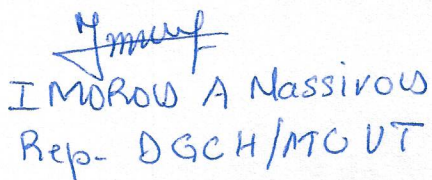 IMOROU A Nassirou
Rep- DGCH/MCVT